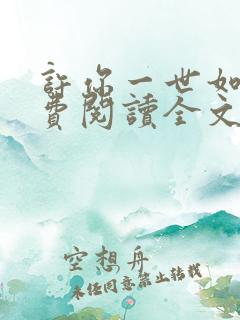 許你一世如
費閱讀全文
空想舟
未經同意禁止轉載